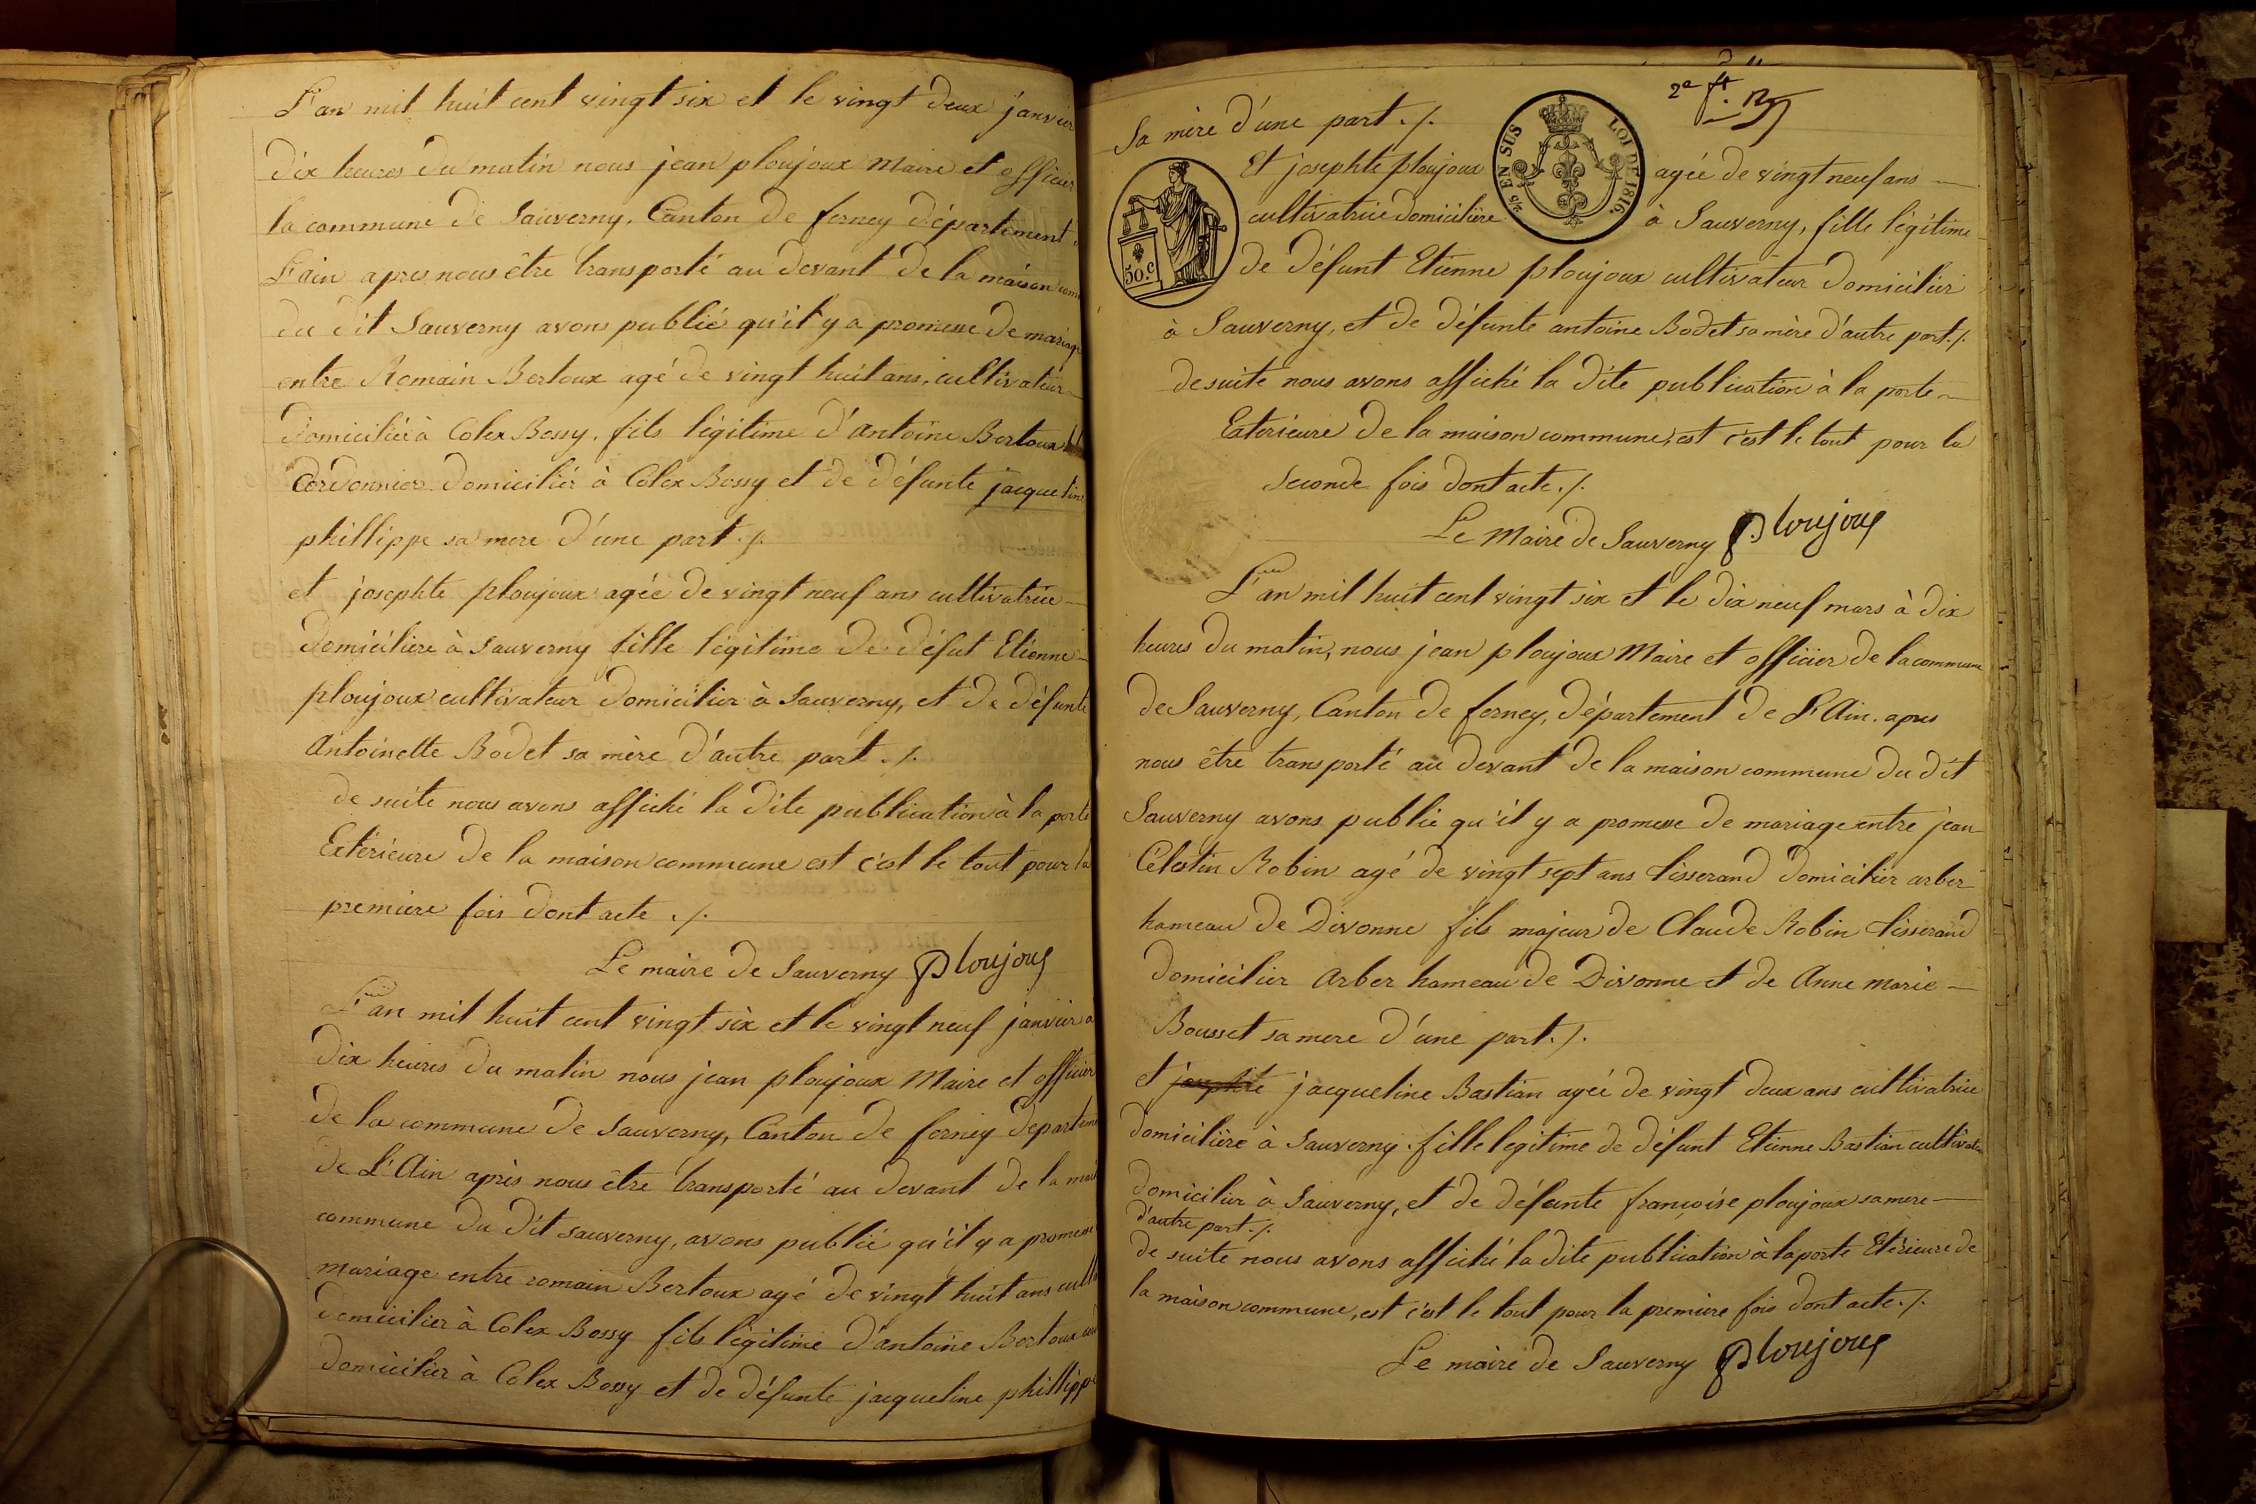 L'an mil huit cent vingt six et le vingt deux janvier
dix heures du matin nous jean ploujoux Maire et officier
la commune de Sauverny, Canton de ferney département
L'ain apres nous être transporté au devant de la maison com
du dit Sauverny avons publié qu'il y a promesse de mariage
entre Romain Bertoux agé de vingt huit ans, cultivateur
domicilié à Colex Bossy, fils légitime d'Antoine Bertoux
Cordonnier domicilier à Colex Bossy et de défunte jacqueline
phillippe sa mere d'une part ./.
et josephte ploujoux agée de vingt neuf ans cultivatrice
domiciliere à Sauverny fille légitime de défut Etienne
ploujoux cultivateur domicilier à Sauverny, et de défunte
Antoinette Bodet sa mère d'autre part ./.
de suite nous avons affiché la dite publication à la porte
Extérieure de la maison commune est c'est le tout pour la
premiere fois dont acte ./.
Le maire de Sauverny Ploujoux
L'an mil huit cent vingt six et le vingt neuf janvier à
dix heures du matin nous jean ploujoux Maire et officier
de la commune de Sauverny, Canton de ferney departeme
de L'Ain après nous être transporté au devant de la mais
commune du dit sauverny, avons publié qu'il y a promesse
mariage entre romain Bertoux agé de vingt huit ans cult
domicilier à Colex Bossy fils légitime d'antoine Bertoux
domicilier à Colex Bossy et de défunte jacqueline phillippe
2e
Sa mère d'une part ./.
2/5 EN SUS LOI DE 1816.
50.c
Et josephte ploujoux agée de vingt neuf ans
cultivatrice domicilière à Sauverny, fille légitime
de défunt Etienne ploujoux cultivateur domicilier
à Sauverny, et de défunte antoine Bodet sa mère d'autre part ./.
de suite nous avons affiché la dite publication à la porte
Exterieure de la maison commune, est c'est le tout pour la
seconde fois dont acte ./.
Le Maire de Sauverny Ploujoux
L'an mil huit cent vingt six et le dix neuf mars à dix
heures du matin, nous jean ploujoux Maire et officier de la commune
de Sauverny, Canton de ferney, département de L'Ain. apres
nous être transporté au devant de la maison commune du dit
Sauverny avons publie qu'il y a promesse de mariage entre jean
Célestin Robin agé de vingt sept ans tisserand domicilier arber
hameau de Divonne fils majeur de Claude Robin tisserand
domicilier Arber hameau de Divonne et de Anne Marie
Bousset sa mere d'une part ./.
et josephte jacqueline Bastian agée de vingt deux ans cultivatrice
domicilière à Sauverny. fille legitime de défunt Etienne Bastian cultivateur
domicilier à Sauverny, et de défunte françoise ploujoux sa mere
d'autre part ./.
de suite nous avons affiché la dite publication à la porte Etérieure de
la maison commune, est c'est le tout pour la premiere fois dont acte ./.
Le maire de Sauverny Ploujoux